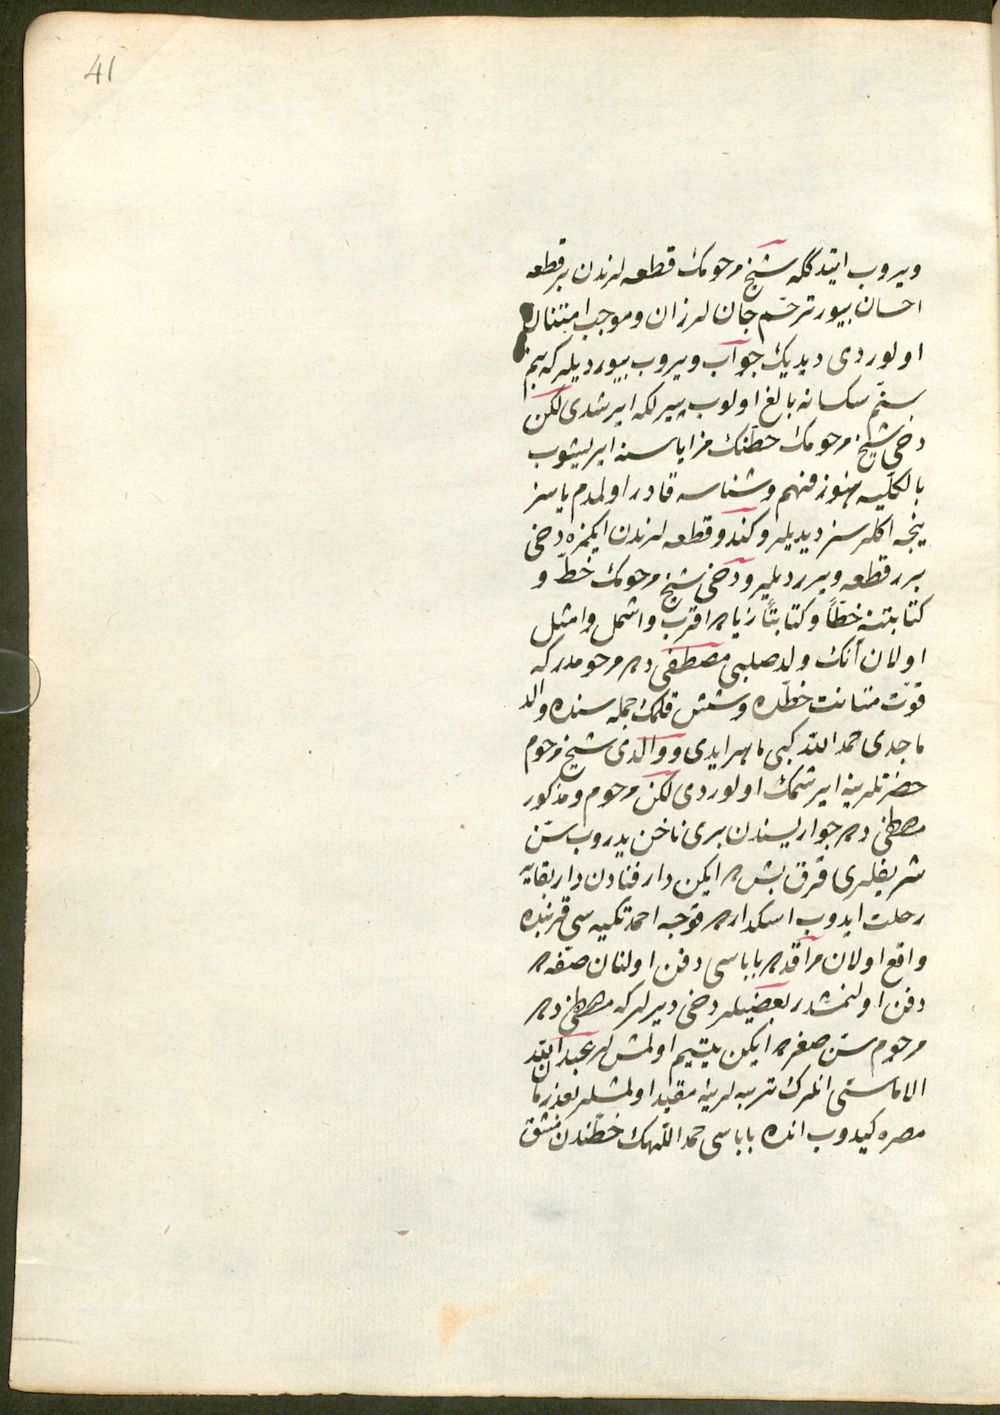 41
ویروب ایتدكلكه شیخ مرحومك قطعه لرندن بر قطعه
احسان بیور ترحّم جان لرزان و موجب امتنان
اولوردی دیدیك جواب ویروب بیوردیلر كه بنم
سنّم سكسانه بالغ اولوب پیرلكه ایرشدی لكن
دخی شیخ مرحومك خطّنك مزایاسنه ایریشوب
بالكلیه هنوز فهم و شناسه قادر اولمدم یا سز
نیجه اكلرسز دیدیلر و كندو قطعه لرندن ایكمزه دخی
برر قطعه ویردیلر و دخی شیخ مرحومك خطّ و
كتابتنه خطّاً و كتابتاً زیاده اقرب و اشمل و امثل
اولان آنك ولد صلبی مصطفی دده مرحومدر كه
قوّت متانت خطّده و شش قلمك جمله سنده والد
ماجدی حمد الله كبی ماهر ایدی و والدی شیخ مرحوم
حضرتلرینه ایرشمك اولوردی لكن مرحوم و مذكور
مصطفی دده جواریسندن بری ناخن یدروب سنّ
شریفلری قرق بشده ایكن دار فنادن دار بقایه
رحلت ایدوب اسكدارده قوجه احمد تكیه سی قربنده
واقع اولان مراقده باباسی دفن اولنان صفّه ده
دفن اولنمشدر بعضیلر دخی دیرلر كه مصطفی دده
مرحوم سنّ صغرده ایكن یتیم اولمش لر عبد الله
الاماسی انلرك تربیه لرینه مقید اولمشلر بعد زمان
مصره كیدوب انده باباسی حمد اللهك خطّندن مشق